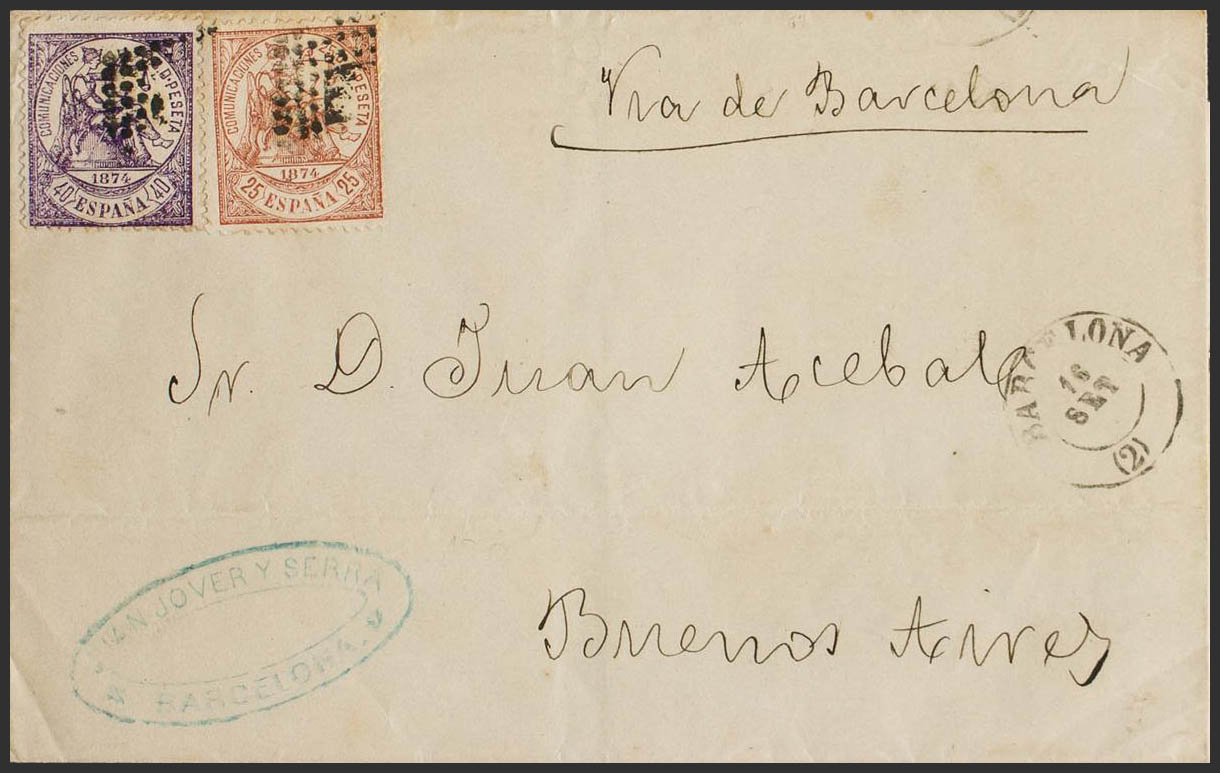 COMUNICACIONES
D. PESETA
1874
40 ESPAÑA 40
COMUNICACIONES
PESETA
1874
25 ESPAÑA 25
Via de Barcelona
Sr. D. Juan Acebal
BARCELONA
16
SET
(2)
JUAN JOVER Y SERRA
BARCELONA.
Buenos Aires